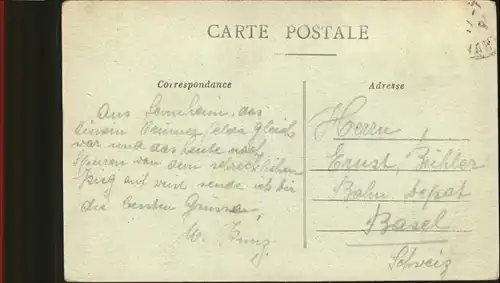 CARTE POSTALE
Correspondance
Adresse
Aus Sennheim, das
einem Ruinen
war und das heute noch
Spuren von dem schrecklichen
Krieg auf weist sende ich dir
die besten Grüsse,
Herrn
Ernst Bühler
Bahn depot
Basel
Schweiz